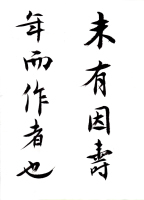 未有因壽
年而作者也